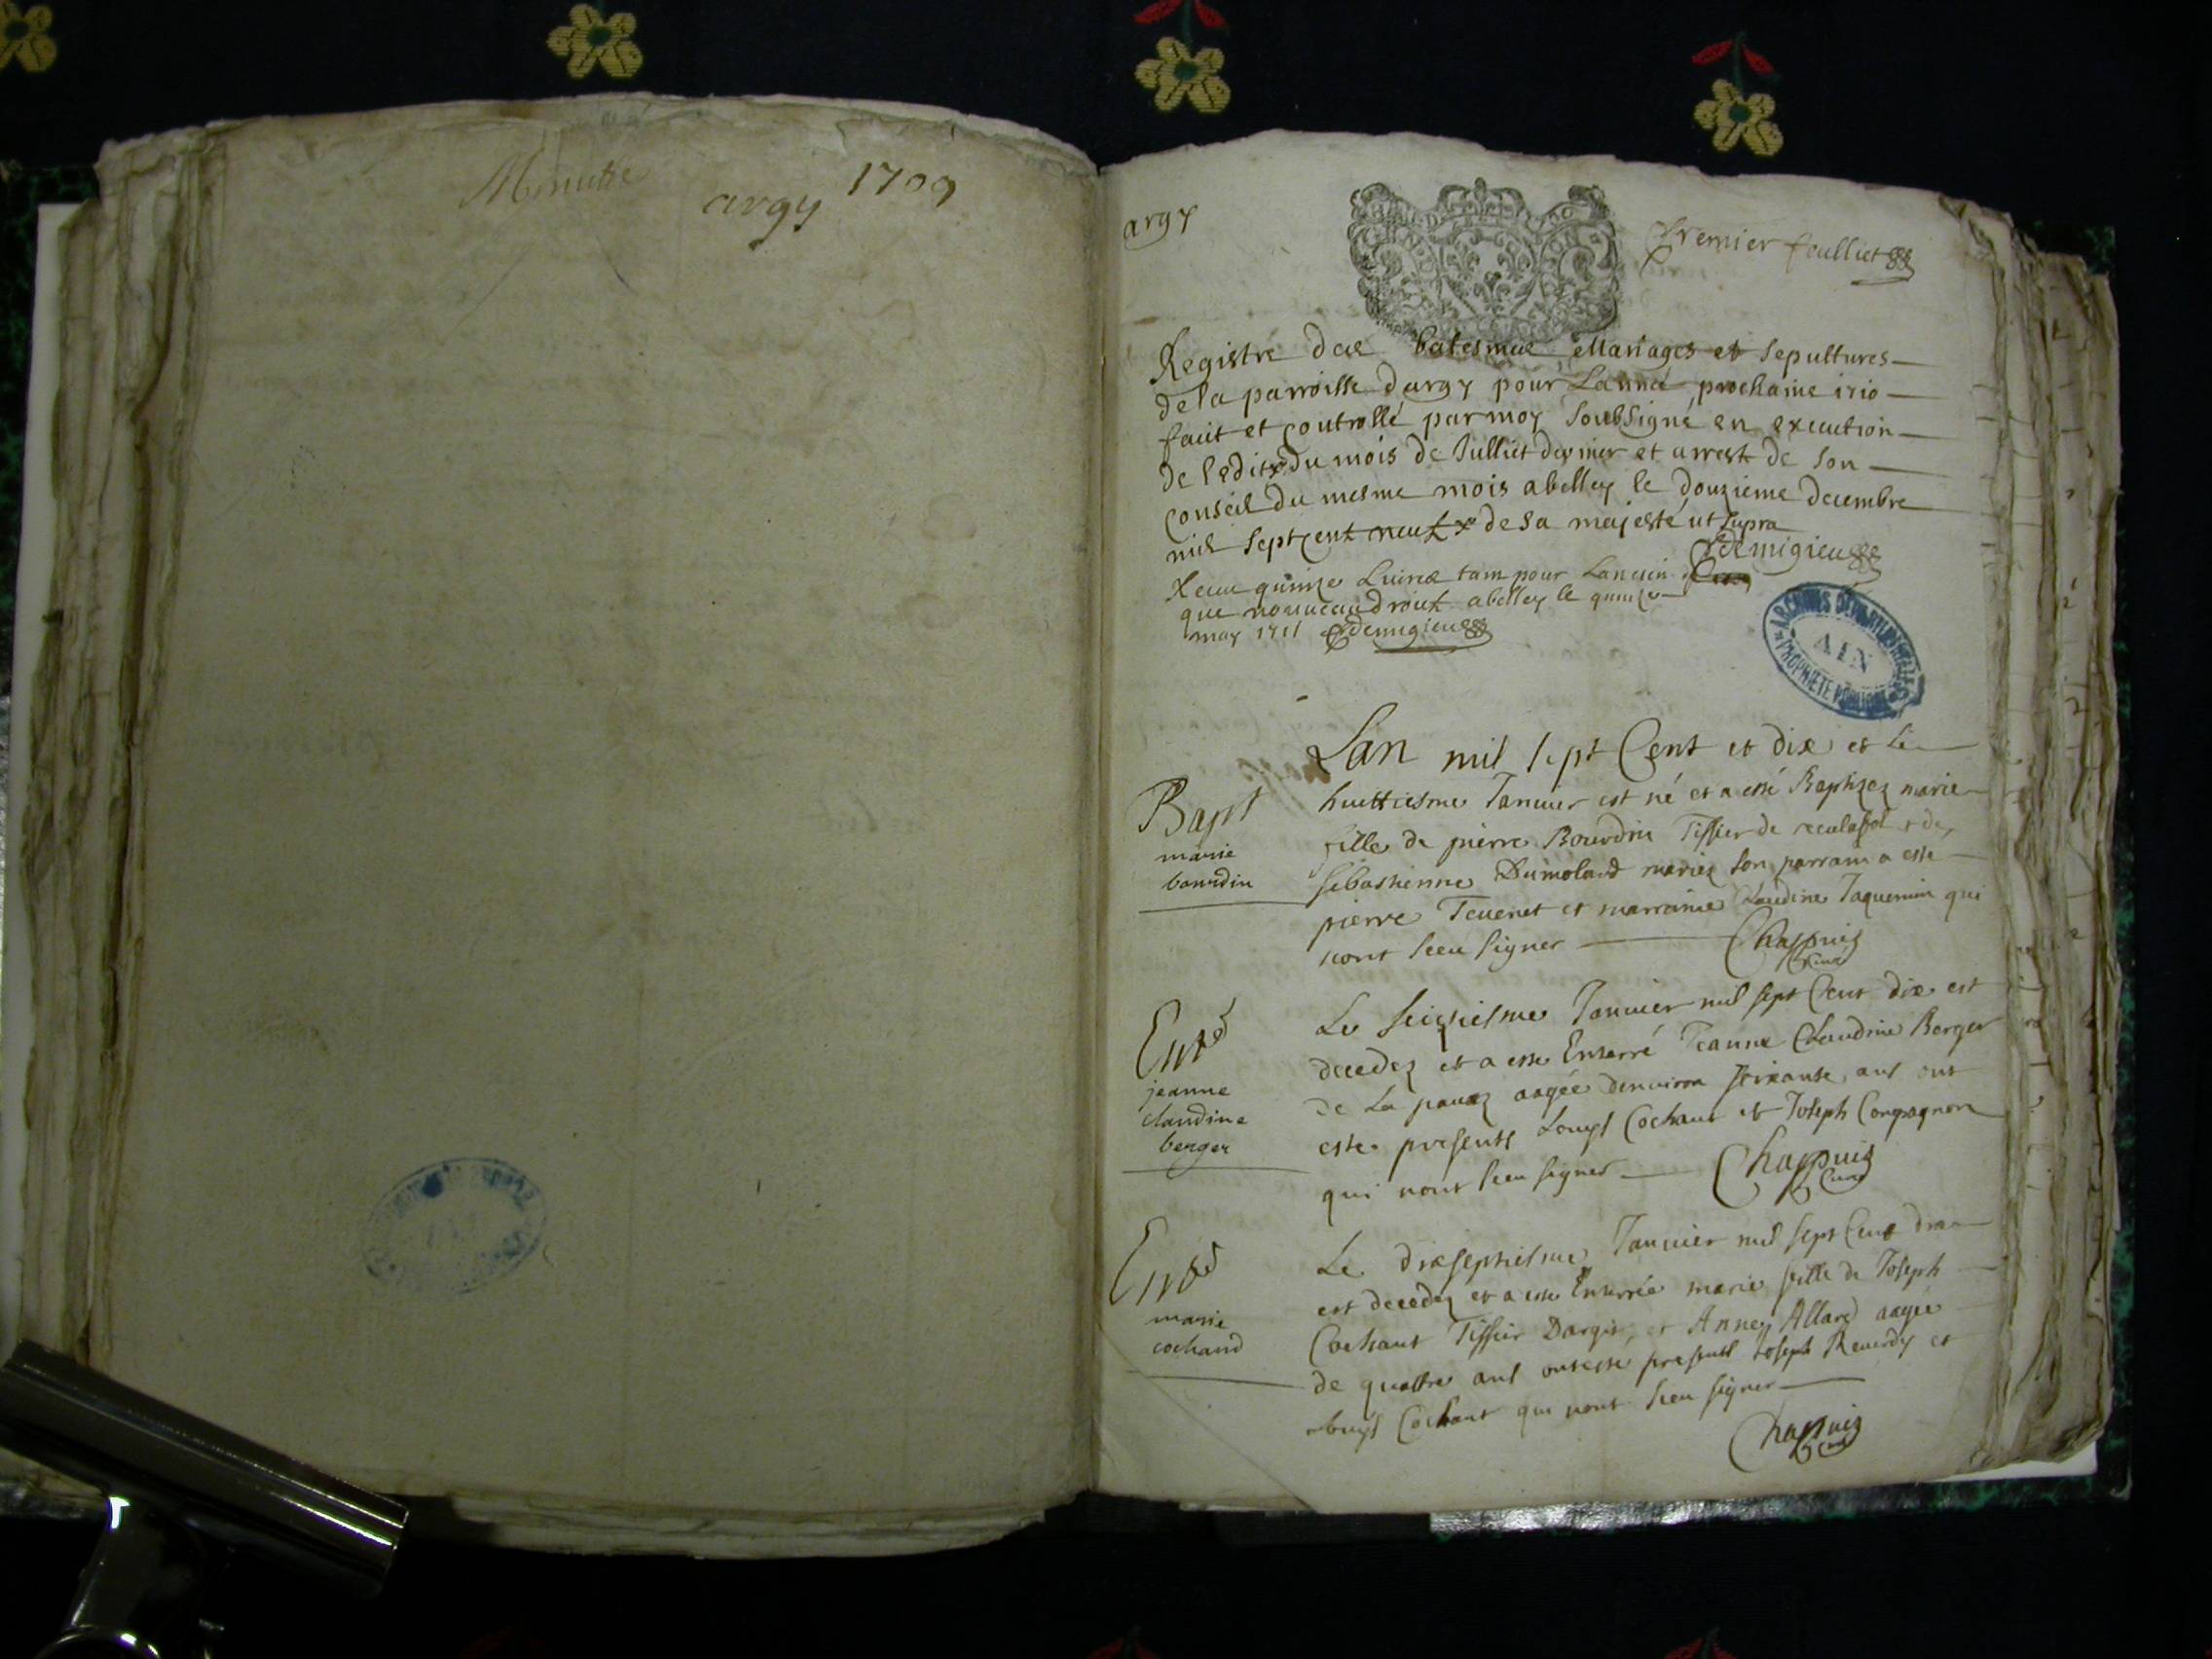 Minutte
argy 1709
argy
Premier feulliet
Registre des batesmes Mariages et sepultures
de la parroisse dargy pour Lannée prochaine 1710
fait et controllé par moy soubsigné en execution
de l'edit x du mois de Julliet dernier et arrest de son
conseil du mesme mois a belley le douzieme decembre
mil sept cent neuf x de sa majesté ut supra
Demigieu
Receu quinze Livres tam pour Lancien
que nouveau droit a belley le quinze
may 1711 Demigieu
ARCHIVES DEPARTEMENTALES
AIN
PROPRIETE PUBLIQUE
Lan mil sept Cent et dix et le
Bapt
marie
bourdin
huittiesme Janvier est né et a esté Baptizez marie
fille de pierre Bourdin Tissier de et de
sebastienne Dumolard mariez son parrain a esté
pierre Tevenet et marraine Claudine Jaquemin qui
nont sceu signer Chappuis
Curé
Enté
jeanne
claudine
berger
Le seiziesme Janvier mil sept Cent dix est
decedez et a esté Enterré Jeanne Claudine Berger
de La aagée denviron soixante ans ont
esté presents Louys Cochant et Joseph Compagnon
qui nont sceu signer Chappuis
Curé
Enté
marie
cochand
Le dixseptiesme Janvier mil sept Cent dix
est decedez et a esté Enterrée marie fille de Joseph
Cochant Tissier Dargis, et Anne Allard aagée
de quattre ans ont esté presents Joseph Reverdy et
Louys Cochant qui nont sceu signer
Chappuis
Curé